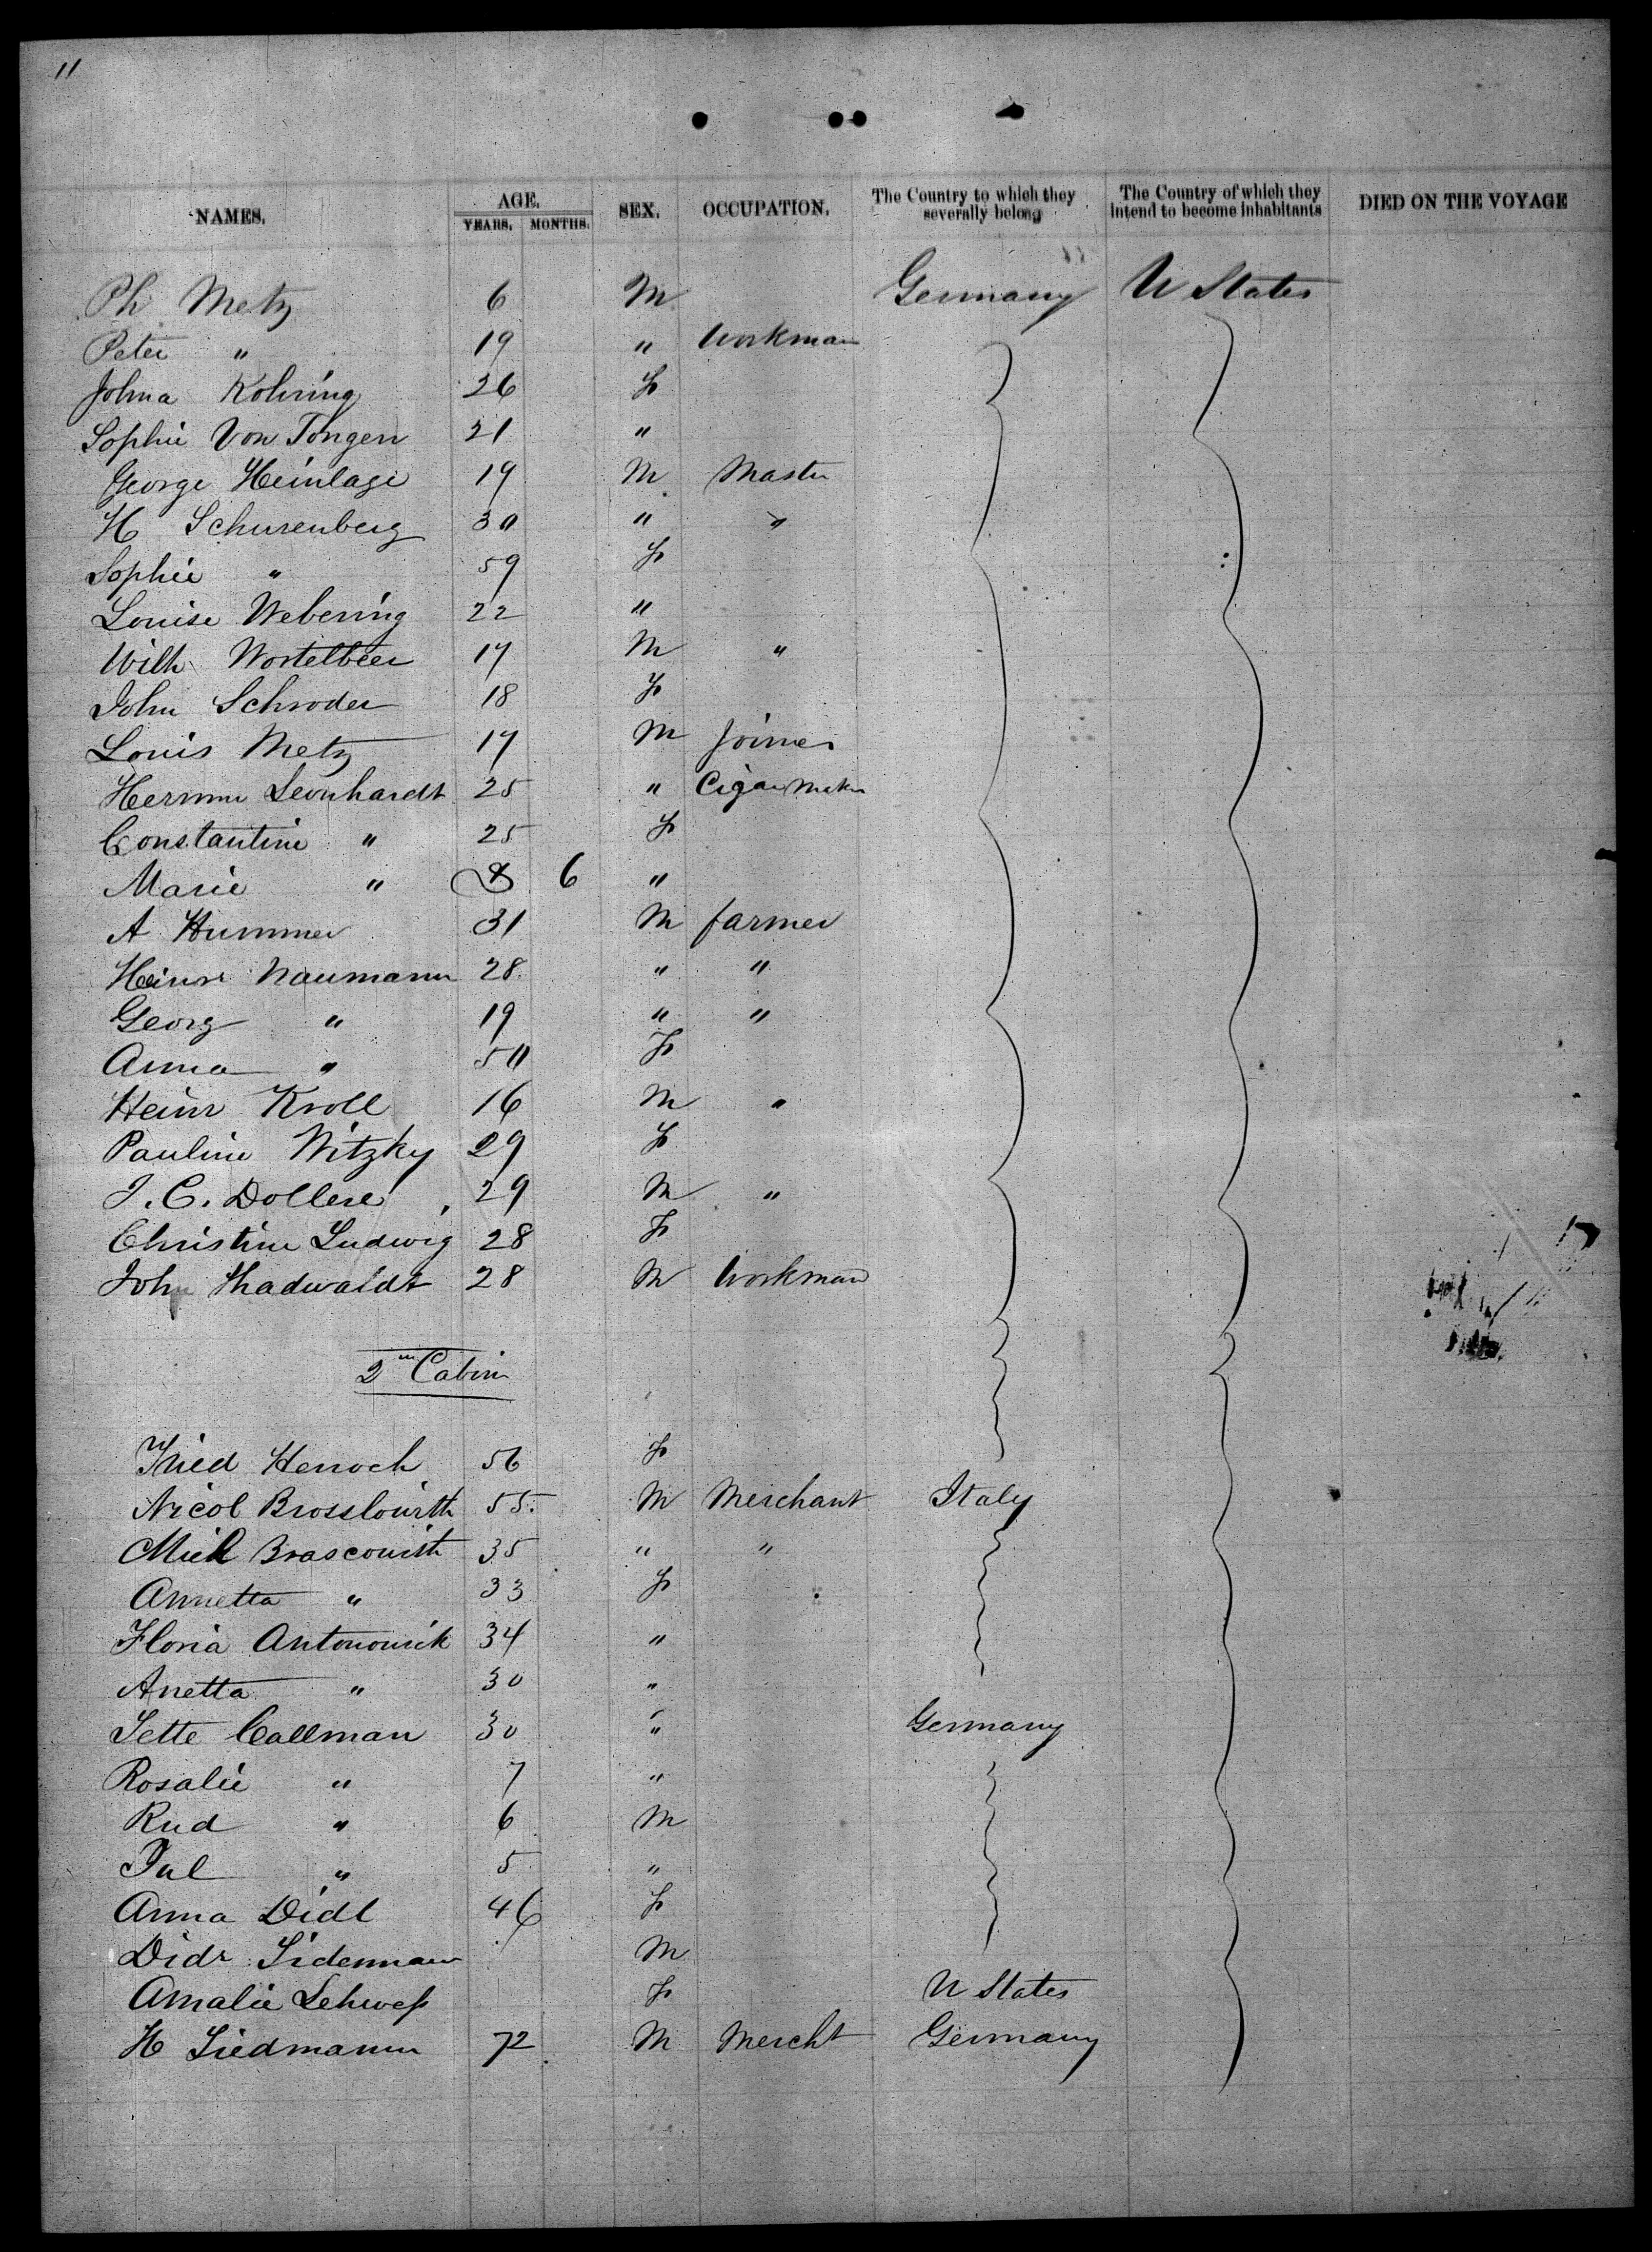 11
NAMES. AGE. YEARS. MONTHS. SEX. OCCUPATION. The Country to which they severally belong The Country of which they intend to become inhabitants DIED ON THE VOYAGE
Ph Metz 6 M Germany U States
Peter " 19 " Workman
Johna Kohring 26 F
Sophie Von Tongen 21 "
George Heinlage 19 M Master
H Schurenberg 30 " "
Sophie " 59 F
Louise Webering 22 "
Wilh Wortelbeer 17 M "
John Schroder 18 F
Louis Metz 17 M Joiner
Hermn Leonhardt 25 " Cigar Maker
Constantine " 25 F
Marie " 6 "
A Hummer 31 M farmer
Heinr Naumann 28 " "
Georg " 19 " "
Anna " 50 F
Heinr Kroll 16 M "
Pauline Witzky 29 F
J. C. Dollere 29 M "
Christine Ludwig 28 F
John Thadwaldt 28 M Workman
2nd Cabin
Fried Henoch 56 F
Nicol Brosslourth 55 M Merchant Italy
Mich Brascourth 35 " "
Annetta " 33 F
Floria Antonowich 34 "
Anetta " 30 "
Jette Callman 30 " Germany
Rosalie " 7 "
Rud " 6 M
Jul " 5 "
Anna Didl 46 F
Didr Sidenmann M
Amalie Lehwess F U States
H Liedmann 72 M Mercht Germany